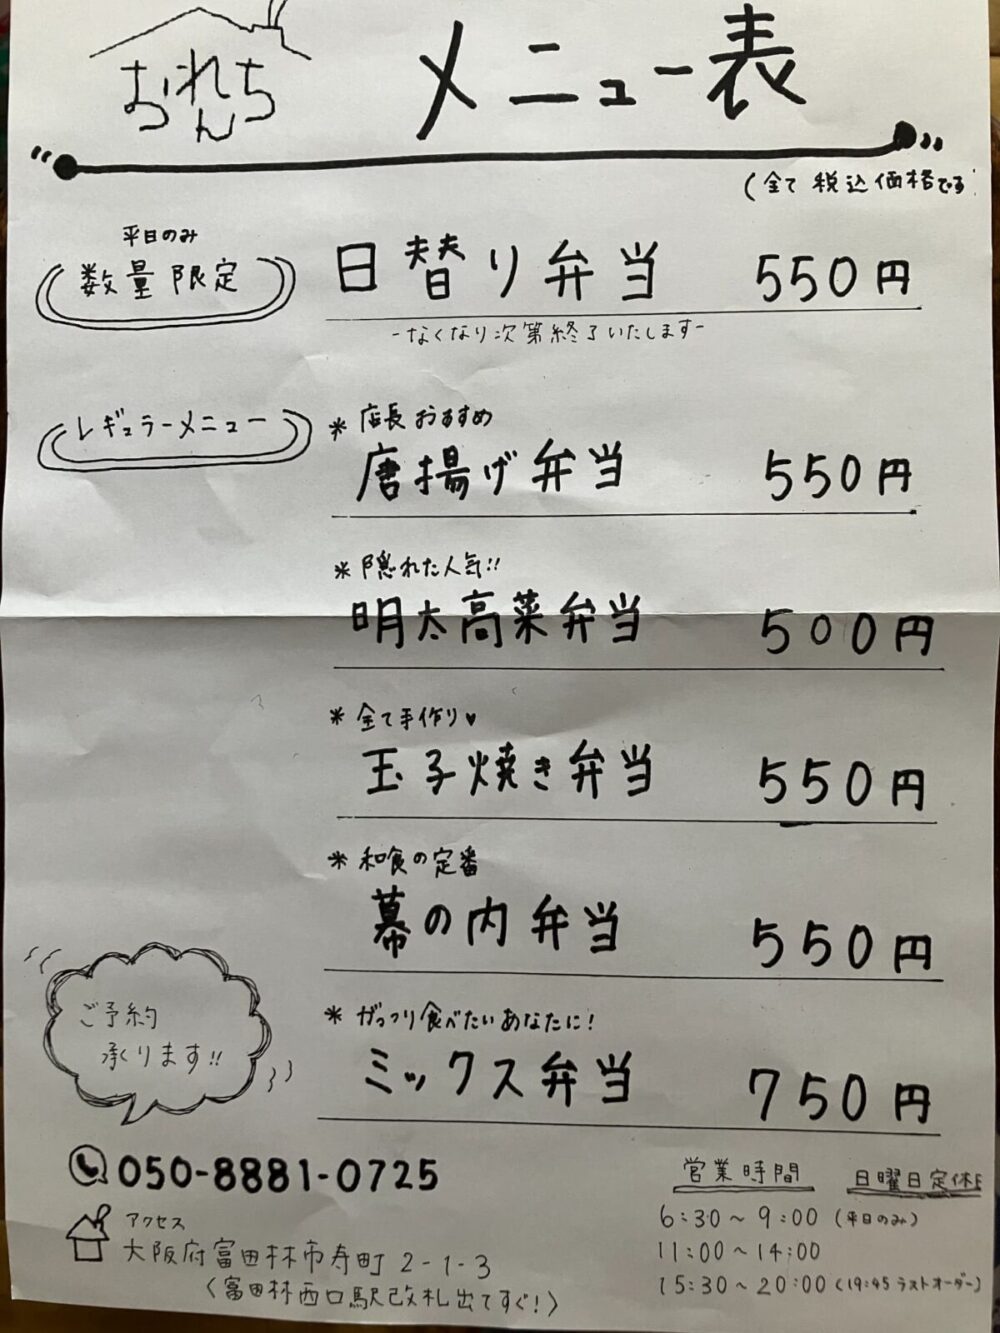 おれんち
メニュー表
(全て税込価格です
平日のみ
数量限定
日替り弁当 550円
-なくなり次第終了いたします-
レギュラーメニュー
*店長おすすめ
唐揚げ弁当 550円
*隠れた人気!!
明太高菜弁当 500円
*全て手作り♥
玉子焼き弁当 550円
*和食の定番
幕の内弁当 550円
*がっつり食べたいあなたに!
ミックス弁当 750円
ご予約
承ります!!
050-8881-0725
アクセス
大阪府富田林市寿町2-1-3
(富田林西口駅改札出てすぐ!)
営業時間 日曜日定休日
6:30~9:00(平日のみ)
11:00~14:00
15:30~20:00(19:45ラストオーダー)